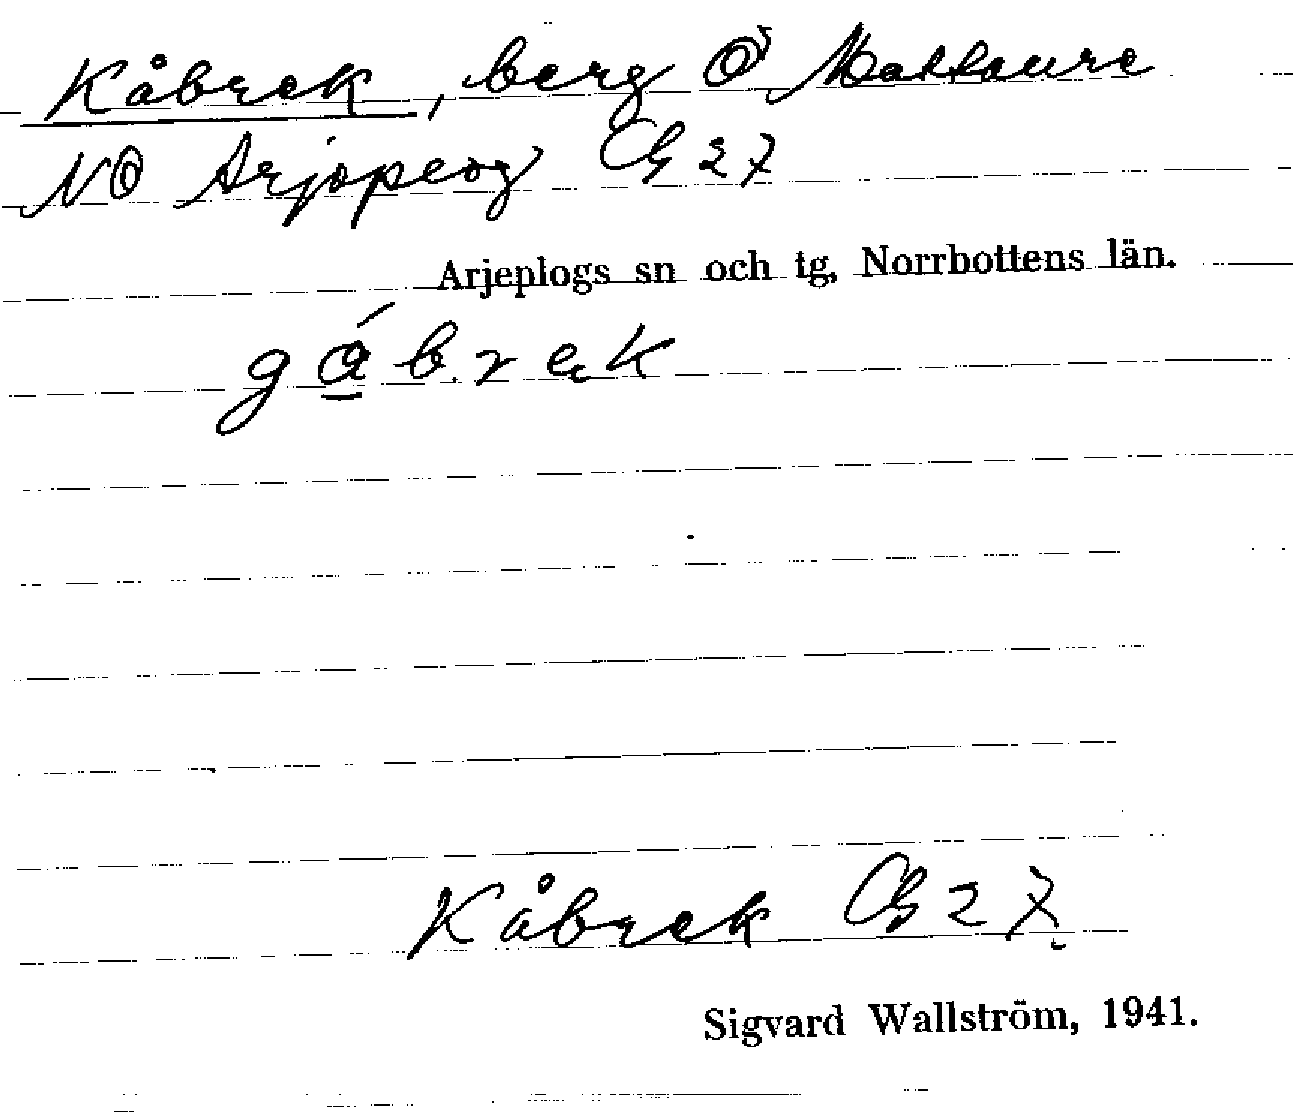 Kåbrek, berg Ö Mattaure
NO Arjepeog Gb 27
Arjeplogs sn och tg, Norrbottens län.
gá̱brek
Kåbrek Gb 27
Sigvard Wallström, 1941.